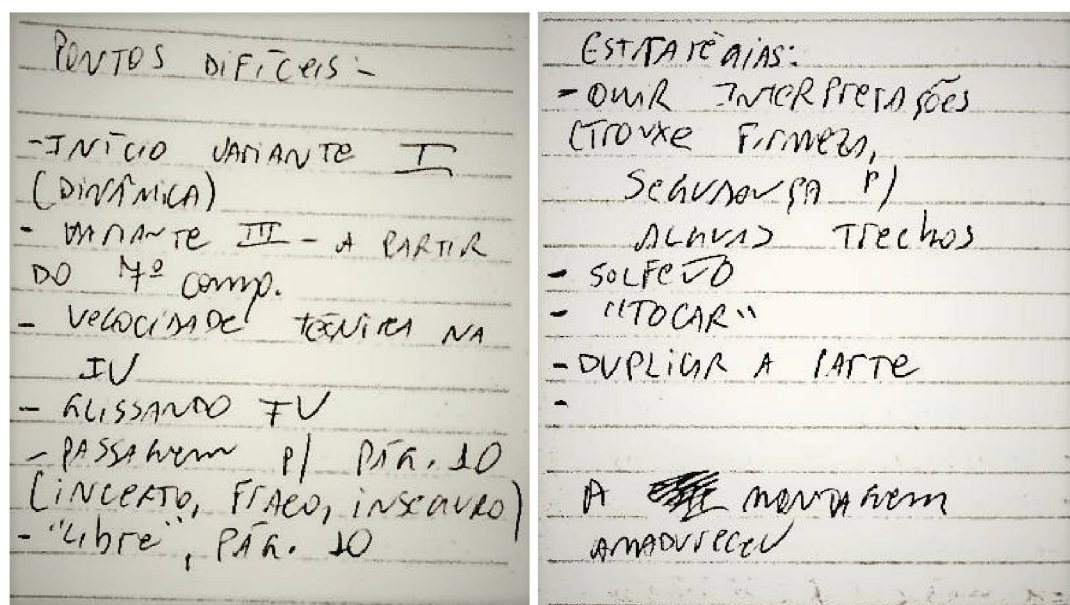 PONTOS DIFÍCEIS:
- INÍCIO VARIANTE I
(DINÂMICA)
- VARIANTE III - A PARTIR
DO 7º comp.
- VELOCIDADE TÉCNICA NA
IV
- GLISSANDO IV
- PASSAGEM P/ PÁG. 10
(INCERTO, FRACO, INSEGURO)
- "Libre", PÁG. 10
ESTRATÉGIAS:
- OUVIR INTERPRETAÇÕES
(TROUXE FIRMEZA,
SEGURANÇA P/
ALGUNS TRECHOS
- SOLFEJO
- "TOCAR"
- DUPLICAR A PARTE
-
A MONTAGEM
AMADURECEU